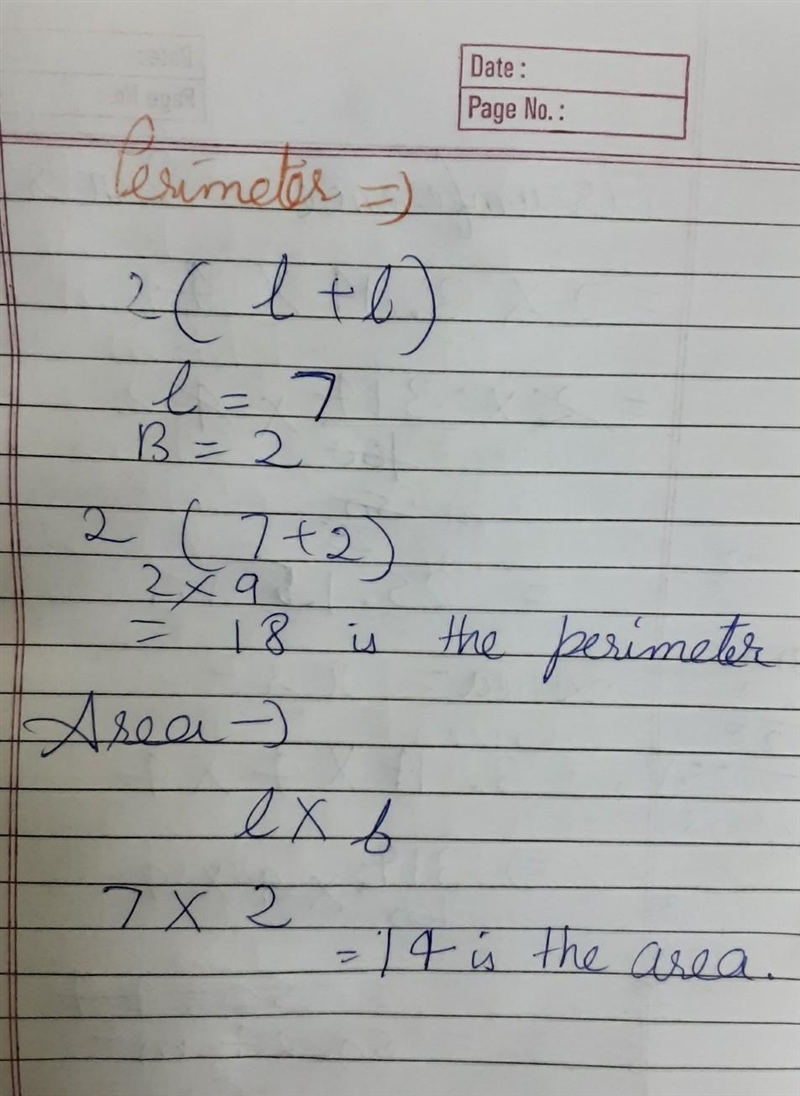 Date :
Page No. :
Perimeter =)
2 ( l + b )
l = 7
B = 2
2 ( 7 + 2 )
2 × 9
= 18 is the perimeter
Area →
l × b
7 × 2
= 14 is the area.